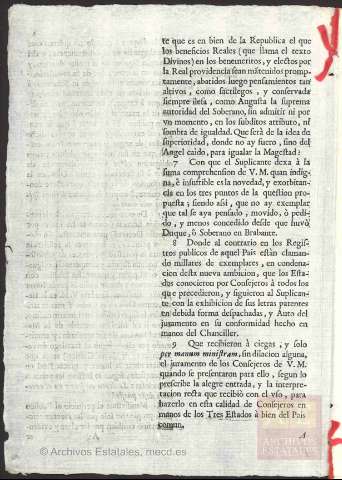 te que es en bien de la Republica el que
los beneficios Reales (que llama el texto
Divinos) en los benemeritos, y electos por
la Real providencia sean mãtenidos promp-
tamente, abatidos luego pensamientos tan
altivos, como sacrilegos, y conservada
siempre ilesa, como Augusta la suprema
autoridad del Soberano, sin admitir ni por
vn momento, en los subditos atributo, ni
sombra de igualdad. Que serà de la idea de
superioridad, donde no ay fuero, sino del
Angel caido, para igualar la Magestad?
7 Con que el Suplicante dexa à la
suma comprehension de V.M. quan indig-
na, è insufrible es la novedad, y exorbitan-
cia en los tres puntos de la question pro-
puesta; siendo assi, que no ay exemplar
que tal se aya pensado, movido, ò pedi-
do, y menos concedido desde que huvo
Duque, ò Soberano en Brabante.
8 Donde al contrario en los Regis-
tros publicos de aquel Pais estàn claman-
do millares de exemplares, en condona-
cion desta nueva ambicion, que los Esta-
dos conocieron por Consejeros à todos los
que precedieron, y siguieron al Suplican-
te con la exhibicion de sus letras patentes
en debida forma despachadas, y Auto del
juramento en su conformidad hecho en
manos del Chanciller.
9 Que recibieron à ciegas, y solo
per manum ministram, sin dilacion alguna,
el juramento de los Consejeros de V.M.
quando se presentaron para ello, segun lo
prescribe la alegre entrada, y la interpre-
tacion recta que recibiò con el vso, para
hazerlo en esta calidad de Consejeros en
manos de los Tres Estados à bien del Pais
comun.
© Archivos Estatales, mecd.es
ARCHIVOS
ESTATALES